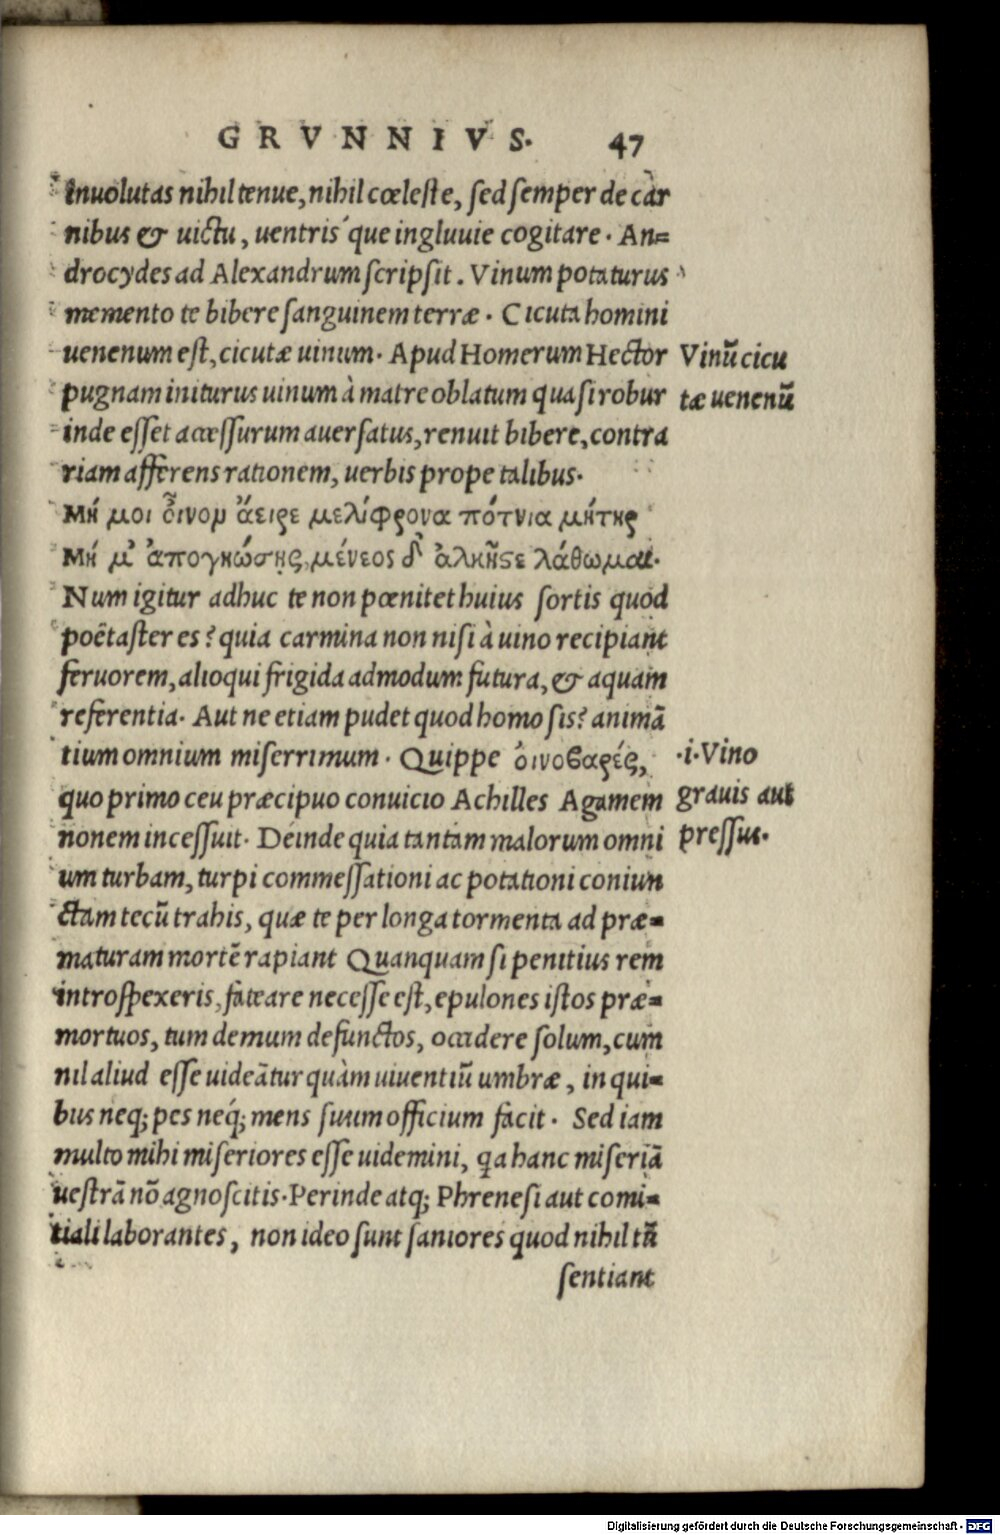 GRVNNIVS. 47
inuolutas nihil tenue, nihil cœleste, sed semper de car
nibus & uictu, uentris´que ingluuie cogitare. An=
drocydes ad Alexandrum scripsit. Vinum potaturus
memento te bibere sanguinem terræ. Cicuta homini
uenenum est, cicutæ uinum. Apud Homerum Hector
Vinũ cicu
pugnam initurus uinum à matre oblatum quasi robur
tæ uenenũ
inde esset accessurum auersatus, renuit bibere, contra
riam afferens rationem, uerbis prope talibus.
Μή μοι οἶνον ἄειρε μελίφρονα πότνια μήτηρ
Μή μ᾽ ἀπογυώσῃς, μένεος δ᾽ ἀλκῆς τε λάθωμαι.
Num igitur adhuc te non pœnitet huius sortis quod
poëtaster es? quia carmina non nisi à uino recipiant
feruorem, alioqui frigida admodum futura, & aquam
referentia. Aut ne etiam pudet quod homo sis? animã
tium omnium miserrimum. Quippe ὀινοβαρές,
.i. Vino
quo primo ceu præcipuo conuicio Achilles Agamem
grauis aut
nonem incessuit. Deinde quia tantam malorum omni
pressus.
um turbam, turpi commessationi ac potationi coniun
ctam tecũ trahis, quæ te per longa tormenta ad præ=
maturam mortẽ rapiant Quanquam si penitius rem
introspexeris, fateare necesse est, epulones istos præ=
mortuos, tum demum defunctos, occidere solum, cum
nil aliud esse uideãtur quàm uiuentiũ umbræ, in qui=
bus neq; pes neq́; mens suum officium facit. Sed iam
multo mihi miseriores esse uidemini, qa hanc miseriã
uestrã nõ agnoscitis. Perinde atq; Phrenesi aut comi=
tiali laborantes, non ideo sunt saniores quod nihil tũ
sentiant
Digitalisierung gefördert durch die Deutsche Forschungsgemeinschaft - DFG